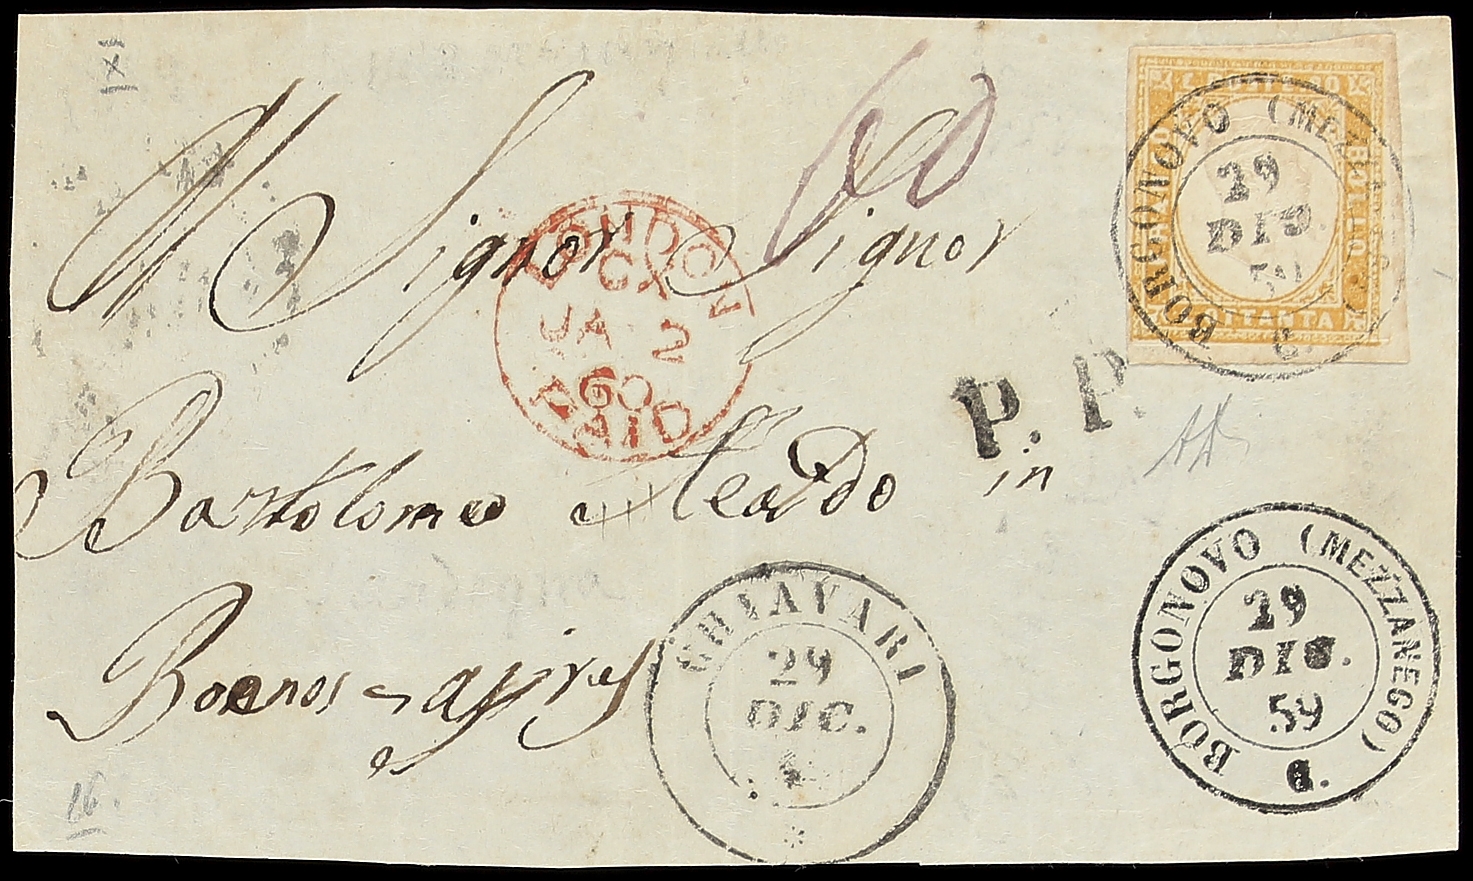 60
Al Signor Signor
Bartolomeo
in
Boenos-ayres
P. P.
LONDON
CX
JA 2
60
PAID
BORGONOVO (MEZZANEGO)
29
DIC.
59
G.
CHIAVARI
29
DIC.
BORGONOVO (MEZZANEGO)
29
DIC.
59
G.
BOLLO
16.